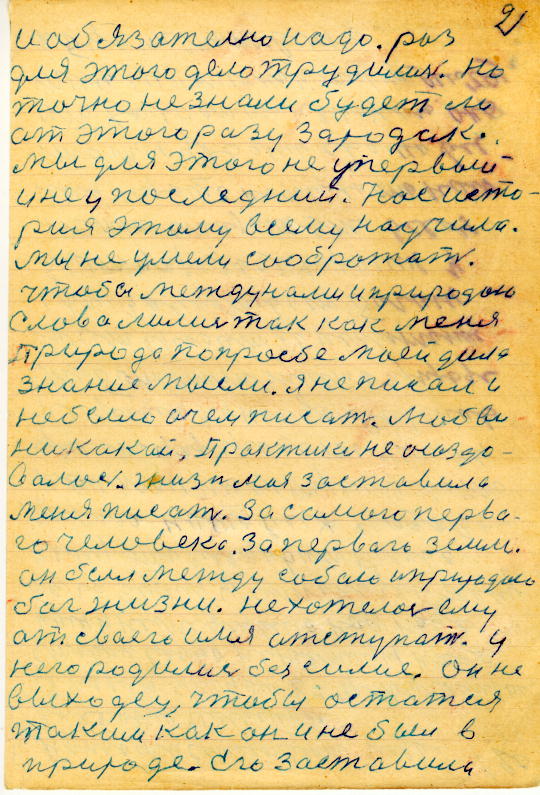 21
и обязателно надо. раз
для этого дело трудилис. Но
точно не знали будет ли
от этого разу зародок.
мы для этого не упервый
и не у последний. Нас исто-
рия этому всему научила.
мы не умели соображат.
чтобы между нами и природою
слова лилис так как меня
Природа попросбе моей дала
знание мысли. я не писал и
небыло очем писат. любви
никакой, Практики не создо-
валос. жизн моя заставила
меня писат. За самого перва-
го человека. За перваго земли.
он был между собою и природою
бог жизни. нехотелос ему
от своего имя отступат. у
него родилис без силие. Он не
выходец, чтобы остатся
таким как он и не был в
природе. Его заставила